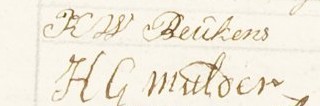 H W Beukens
H G Mulder